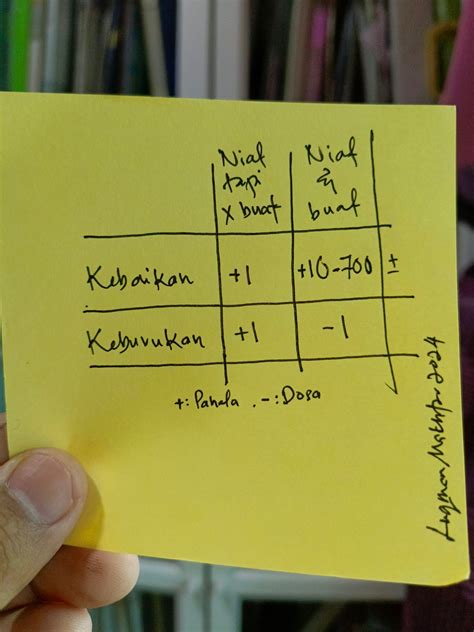 Niat
tapi
x buat
Niat
&
buat
Kebaikan +1 +10-700 ±
Keburukan +1 -1
+: Pahala . -: Dosa
Luqman Makhtar 2024